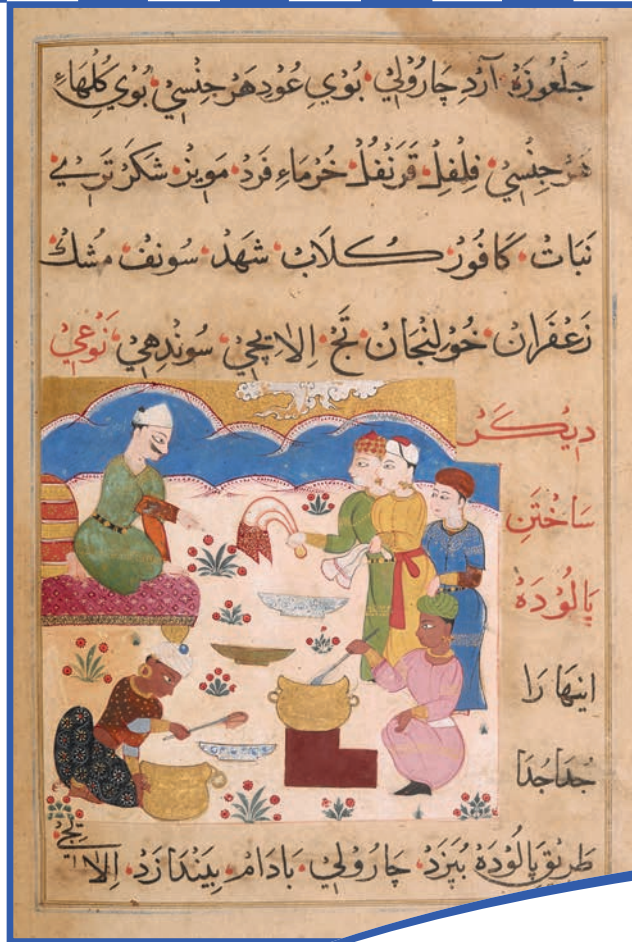 جَلْغُوزَهْ آرْدِ چَارُولِي بُوْيِ عُوْدِ هَرْ جِنْسِي بُوْيِ گُلْهَاءِ
هَرْ جِنْسِي فِلْفِلْ قَرَنْفُلْ خُرْمَاءِ فَرْد مَوِيْز شَكَرْ تَرِي
نَبَات كَافُوْر كُلَاب شَهْد سُونْف مُشْك
زَعْفَرَان خُوْلِنْجَان تَجْ اِلَايِچِي سُونْدِهِي نَوْعِي
دِيْكَرْ
سَاخْتَنِ
پَالُوْدَهْ
اينها رَا
جُدَاجُدَا
طَرِيْقِ پَالُوْدَهْ بُپَزَدْ چَارُولِي بَادَام بِيَنْدَازَدْ اِلَايِچِي